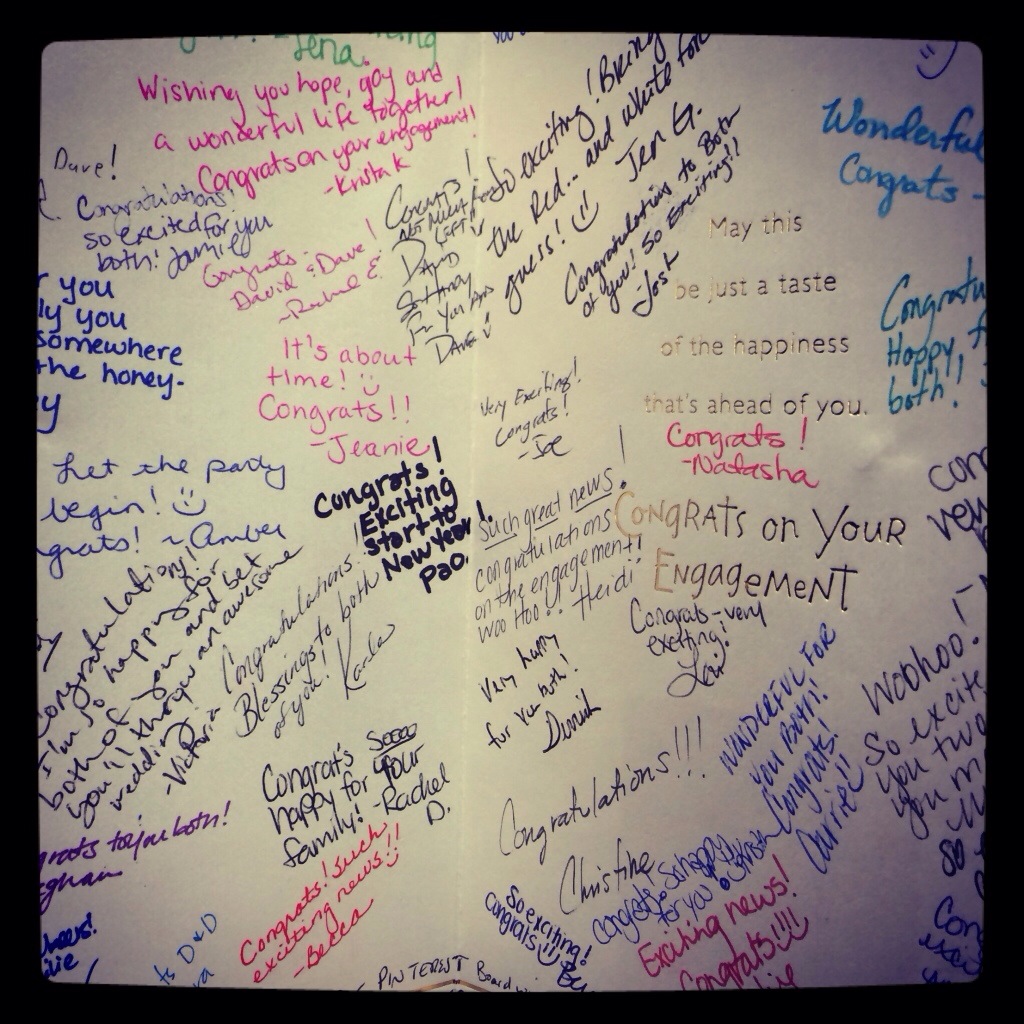 Jena.
Wishing you hope, gay and
a wonderful life together!
Congrats on your engagement!
-Krista K
Dave!
Congratulations!
so excited for you
both! Jamilyn
Congrats
David & Dave!
~Rachel E.
you
ly you
somewhere
the honey-
y
It's about
time!
Congrats!!
-Jeanie
Let the party
begin!
grats! ~Amber
Congrats!
Exciting
start to
New Year!
Pao.
Congratulations!
I'm so happy for
both of you and bet
you'll throw an awesome
wedding
-Victoria
Congratulations.
Blessings to both
of you! Karla
Congrat's Soooo
happy for your
family! -Rachel
D.
grats to you both!
Congrats! such
exciting news!!
-Becca
D&D
Congrats!
Not much room
left!
David
So Happy
For You And
Dave
So exciting! Bring
the Red... and white for
guess! Jen G.
Congratulations to Both
of you! So Exciting!!
-Josh
Very Exciting!
Congrats!
-Joe
Such great news!
congratulations
on the engagement!
Woo Hoo!! Heidi
Very happy
for you both!
Congratulations!!!
Christine
So exciting!
congrats!
PINTEREST Board
Wonderful
Congrats -
May this
be just a taste
of the happiness
that's ahead of you.
Congrats!
-Natasha
Congrats on Your
Engagement
Congrats - very
exciting!
Lori
Happy,
both!
Wonderful for
you Both!
Congrats!
Carrie!!
Congrats So happy
for you
Exciting news!
Congrats!!!!
Woohoo!
So excite
you two
you m
so
Con